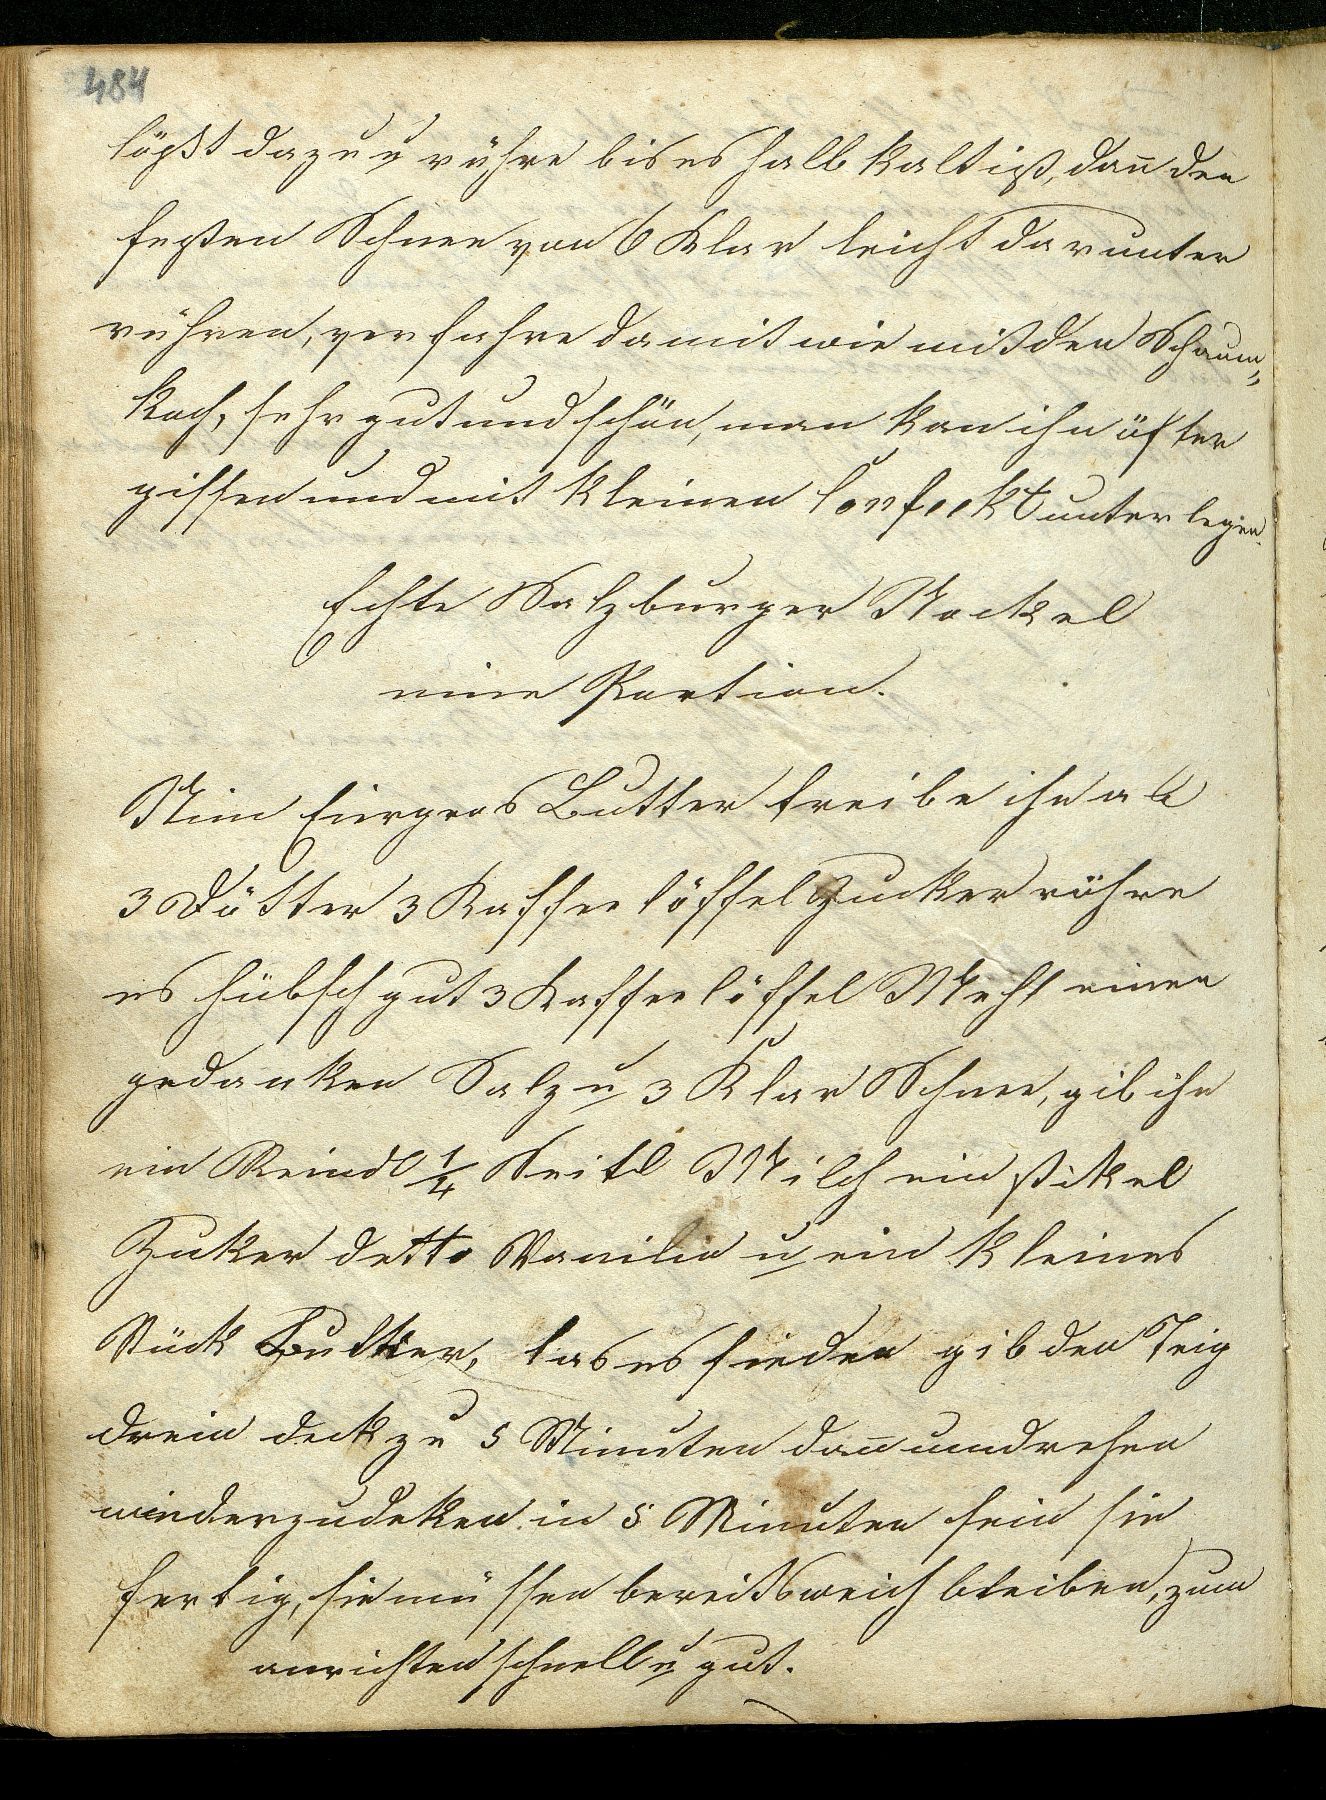 484
lößt dazu u rühre bis es halb kalt ist, dañ den
festen Schnee von 6 Klar leicht darunter
rühren, verfahre damit wie mit den Schaum„
koch, sehr gut und schön, man kan ihn öfter
gissen und mit kleinen Confeckt unterlegen.
Echte Salzburger Nockel
eine Portion.
Nim Eiergros Butter treibe ihn ab
3 Dötter 3 Kaffeelöffel Zucker rühre
es hübsch gut 3 Kaffeelöffel Mehl einen
gedanken Salz u 3 Klar Schnee, gib ihn
ein Reindl 1/4 Seitl Milch ein stikel
Zuker detto Vanilie u ein kleines
Stück Butter, las es sieden gib den Teig
drein deck zu 5 Minuten dañ umdrehen
wieder zudeken in 5 Minuten sein sie
fertig, sie müssen bereits weich bleiben, zum
anrichten schnell u gut.